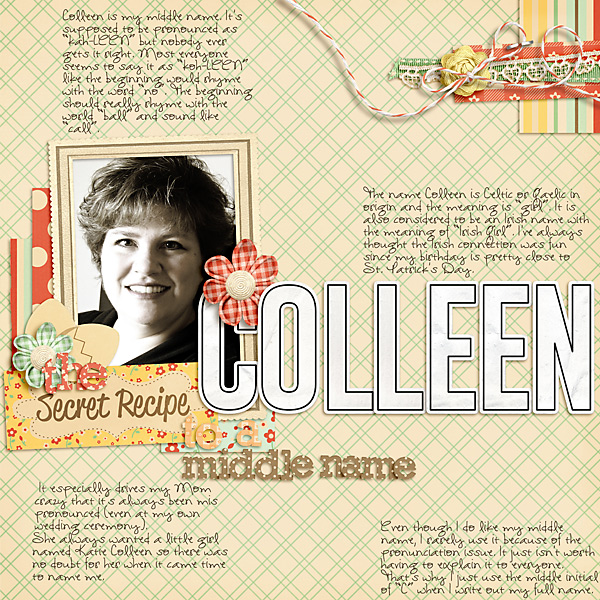 Colleen is my middle name. It's
supposed to be pronounced as
"kah-LEEN" but nobody ever
gets it right. Most everyone
seems to say it as "koh-LEEN"
like the beginning would rhyme
with the word "no". The beginning
should really rhyme with the
world "ball" and sound like
"call".
The name Colleen is Celtic or Gaelic in
origin and the meaning is "girl". It is
also considered to be an Irish name with
the meaning of "Irish Girl". I've always
thought the Irish connection was fun
since my birthday is pretty close to
St. Patrick's Day.
COLLEEN
the
Secret Recipe
to a
middle name
It especially drives my Mom
crazy that it's always been mis
pronounced (even at my own
wedding ceremony).
She always wanted a little girl
named Katie Colleen so there was
no doubt for her when it came time
to name me.
Even though I do like my middle
name, I rarely use it because of the
pronunciation issue. It just isn't worth
having to explain it to everyone.
That's why I just use the middle initial
of "C" when I write out my full name.